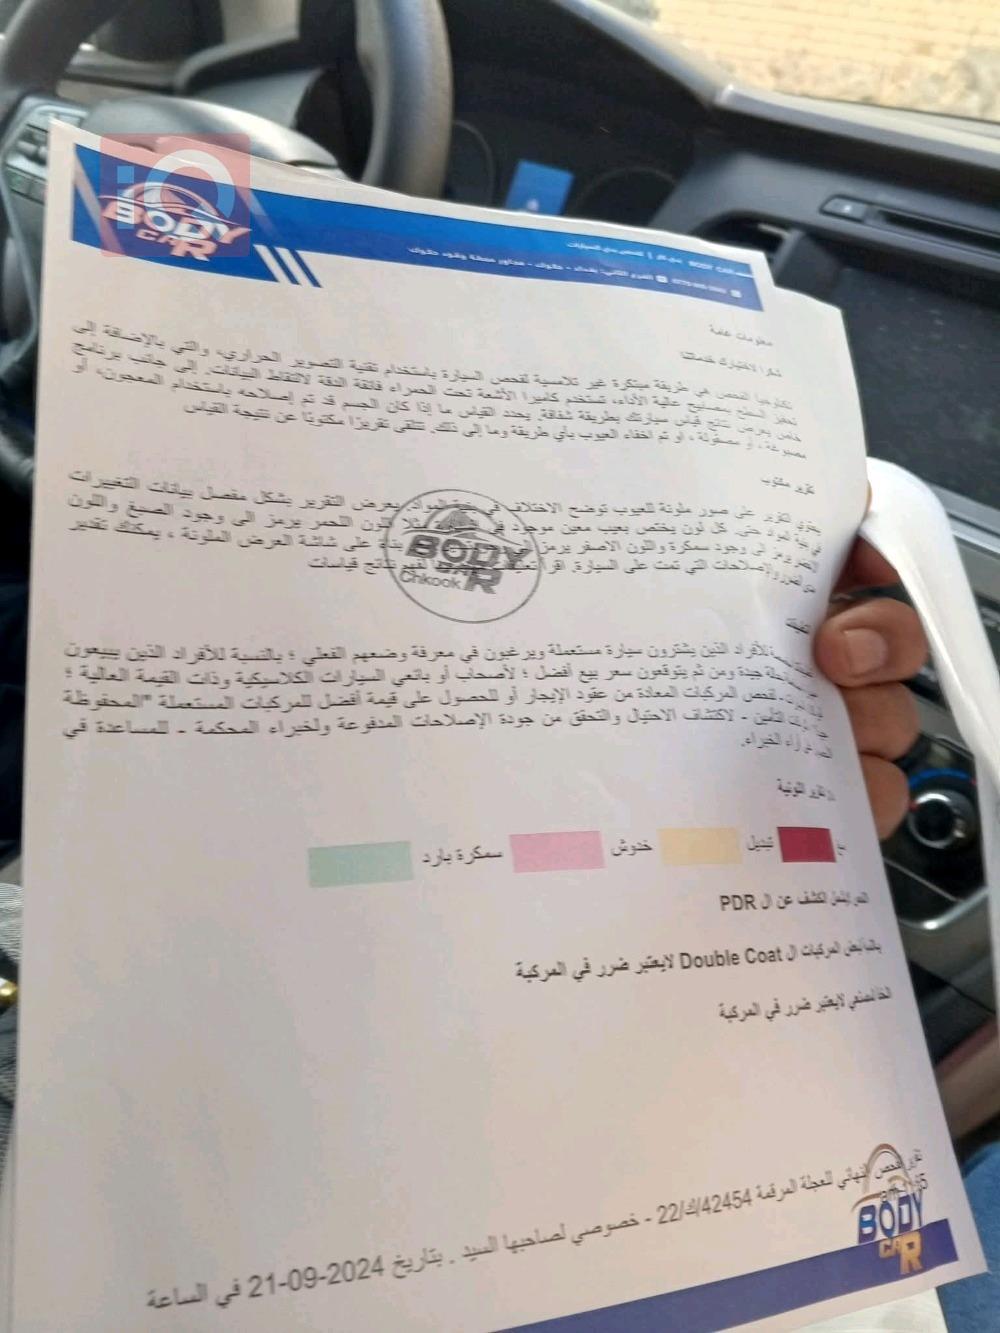 iQ
BODY
CAR
BODY CAR بدي كار | لفحص بدي السيارات
الفرع الثاني: بغداد - حلوان - مجاور محطة وقود
معلومات عامة
شكرا لاختيارك خدماتنا
تكنلوجيا الفحص هي طريقة مبتكرة غير تلامسية لفحص السيارة باستخدام تقنية التصوير الحراري، والتي بالإضافة إلى
تحفيز السطح بمصابيح عالية الأداء، تستخدم كاميرا الأشعة تحت الحمراء فائقة الدقة لالتقاط البيانات. إلى جانب برنامج
خاص يعرض نتائج قياس سيارتك بطريقة شفافة. يحدد القياس ما إذا كان الجسم قد تم إصلاحه باستخدام المعجون، أو
مصبوغة ، أو مصقولة ، او تم اخفاء العيوب بأي طريقة وما إلى ذلك. تتلقى تقريرًا مكتوبًا عن نتيجة القياس
تقرير مكتوب
يحتوي التقرير على صور ملونة للعيوب توضح الاختلاف في المواد. يعرض التقرير بشكل مفصل بيانات التغييرات
في بنية المواد حتى. كل لون يختص بعيب معين موجود اللون الاحمر يرمز الى وجود الصبغ واللون
يرمز الى وجود سمكرة واللون الاصفر يرمز بناء على شاشة العرض الملونة ، يمكنك تقدير
مدى الضرر والإصلاحات التي تمت على السيارة. اقرأ لفهم نتائج قياسات
BODY
CAR
Chkook
للأفراد الذين يشترون سيارة مستعملة ويرغبون في معرفة وضعهم الفعلي ؛ بالنسبة للأفراد الذين يبيعون
بحالة جيدة ومن ثم يتوقعون سعر بيع أفضل ؛ لأصحاب أو بائعي السيارات الكلاسيكية وذات القيمة العالية ؛
لفحص المركبات المعادة من عقود الإيجار أو للحصول على قيمة أفضل للمركبات المستعملة "المحفوظة
التأمين - لاكتشاف الاحتيال والتحقق من جودة الإصلاحات المدفوعة ولخبراء المحكمة - للمساعدة في
آراء الخبراء.
تقرير اللونية
تبديل خدوش سمكرة بارد
الكشف عن ال PDR
المركبات ال Double Coat لايعتبر ضرر في المركبة
لايعتبر ضرر في المركبة
تقرير فحص نهائي للعجلة المرقمة 42454/ك/22 - خصوصي لصاحبها السيد . بتاريخ 21-09-2024 في الساعة
BODY
CAR